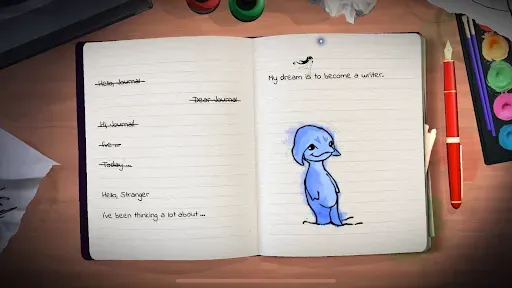 Hello, Journal
Dear Journal
Hi, Journal
I've ...
Today ...
Hello, Stranger
I've been thinking a lot about ...
My dream is to become a writer.